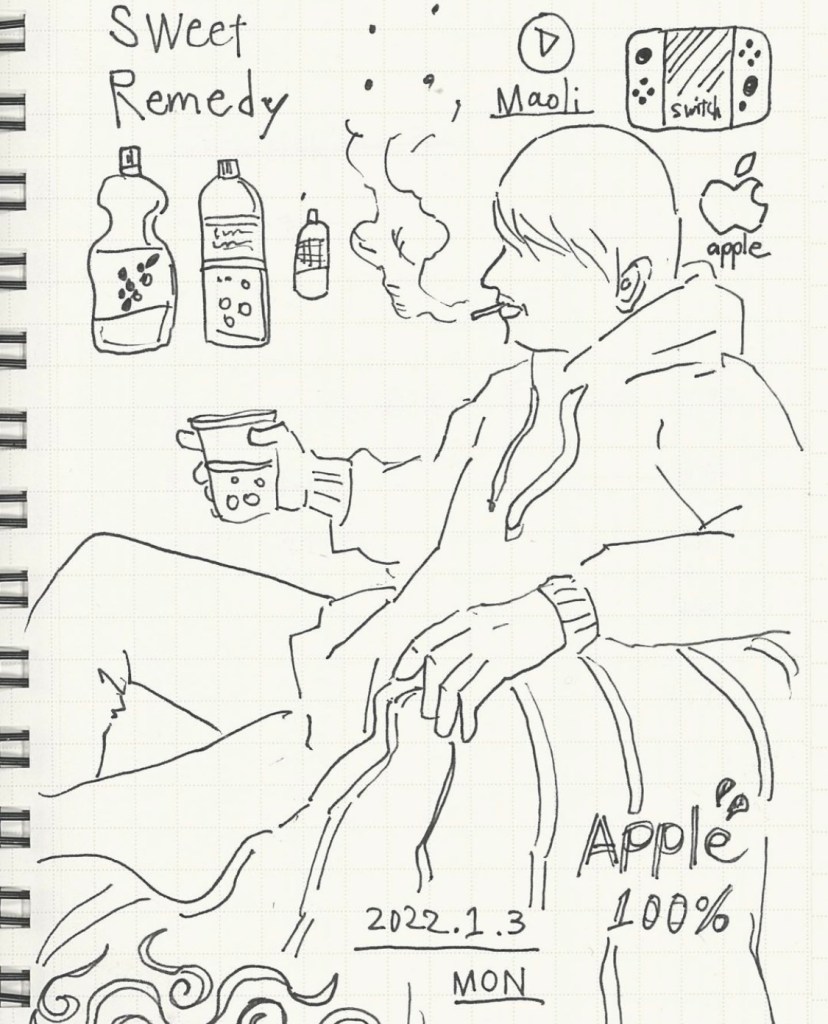 Sweet
Remedy
Maoli
switch
apple
Apple
100%
2022.1.3
MON